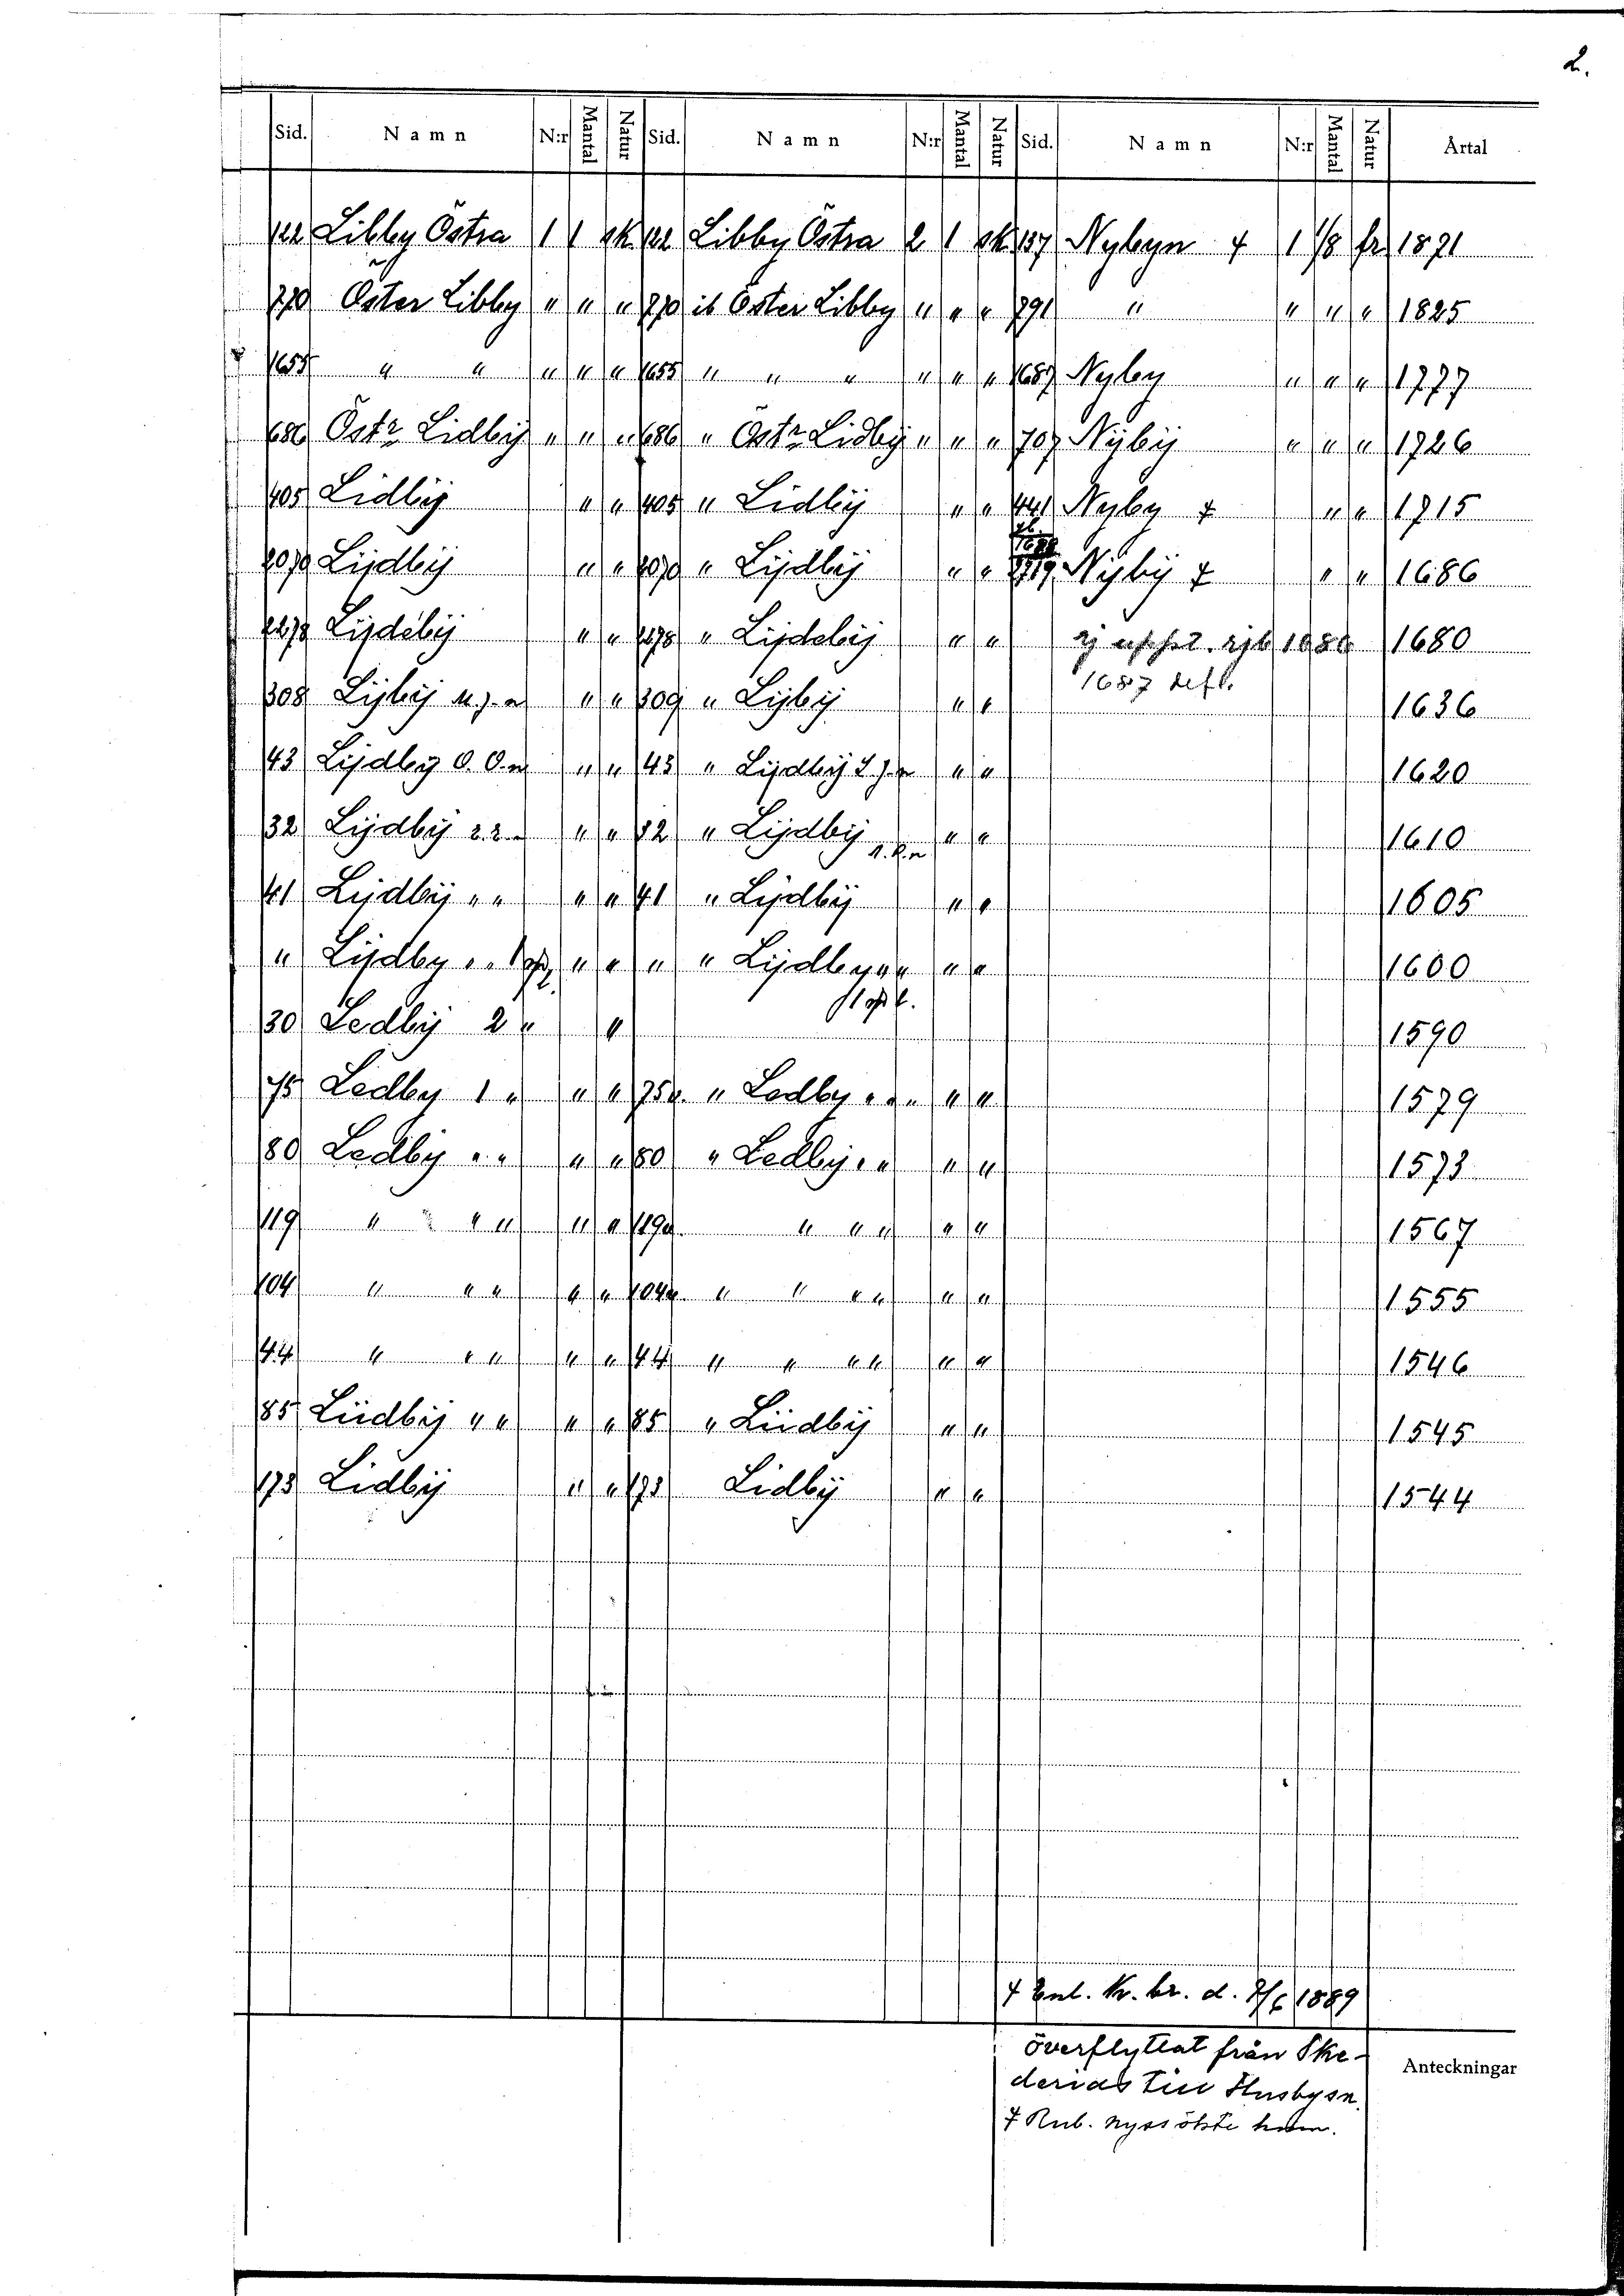 2.
Sid. Namn N:r Mantal Natur Sid. Namn N:r Mantal Natur Sid. Namn N:r Mantal Natur Årtal
122 Libby Östra 1 1 sk 122 Libby Östra 2 1 sk 137 Nybyn + 1 1/8 fr 1871
770 Öster Libby " " " 770 ib Öster Libby " " " 791 " " " " 1825
1655 " " " " " 1655 " " " " " " 1687 Nyby " " " 1777
686 Östr Lidbÿ " " " 686 " Östr Lidbÿ " " " 707 Nÿbÿ " " " 1726
405 Lidbÿ " " 405 " Lidbÿ " " 441 Nyby + " " 1715
2070 Lijdbÿ " " 2070 " Lijdbÿ " " Nÿbÿ + " " 1686
2278 Lijdebÿ " " 2278 " Lijdebÿ " " 1680
1687 defl.
308 Lijbÿ " " 309 " Lijbÿ " " 1636
43 Lijdbÿ O. O. n " " 43 " Lijdbÿ " " 1620
32 Lijdbÿ " " 32 " Lijdbÿ " " 1610
41 Lijdbÿ " " " " 41 " Lijdbÿ " " 1605
" Lijdby " " " " " " Lijdby " " " " 1600
30 Ledbÿ 2 " " 1590
75 Ledby 1 " " " 75 v. " Ledby " " " " " 1579
80 Ledbÿ " " " " 80 " Ledbÿ " " " " 1573
119 " " " " " 119 v. " " " " " 1567
104 " " " " " 104 v. " " " " " " 1555
44 " " " " " 44 " " " " " " 1546
85 Liidbÿ " " " " 85 " Liidbÿ " " 1545
173 Lidbÿ " " 173 Lidbÿ " " 1544
+ Enl. K. br. d. 7/6 1889
överflyttat från Ske-
derids till Husbysn.
Anteckningar